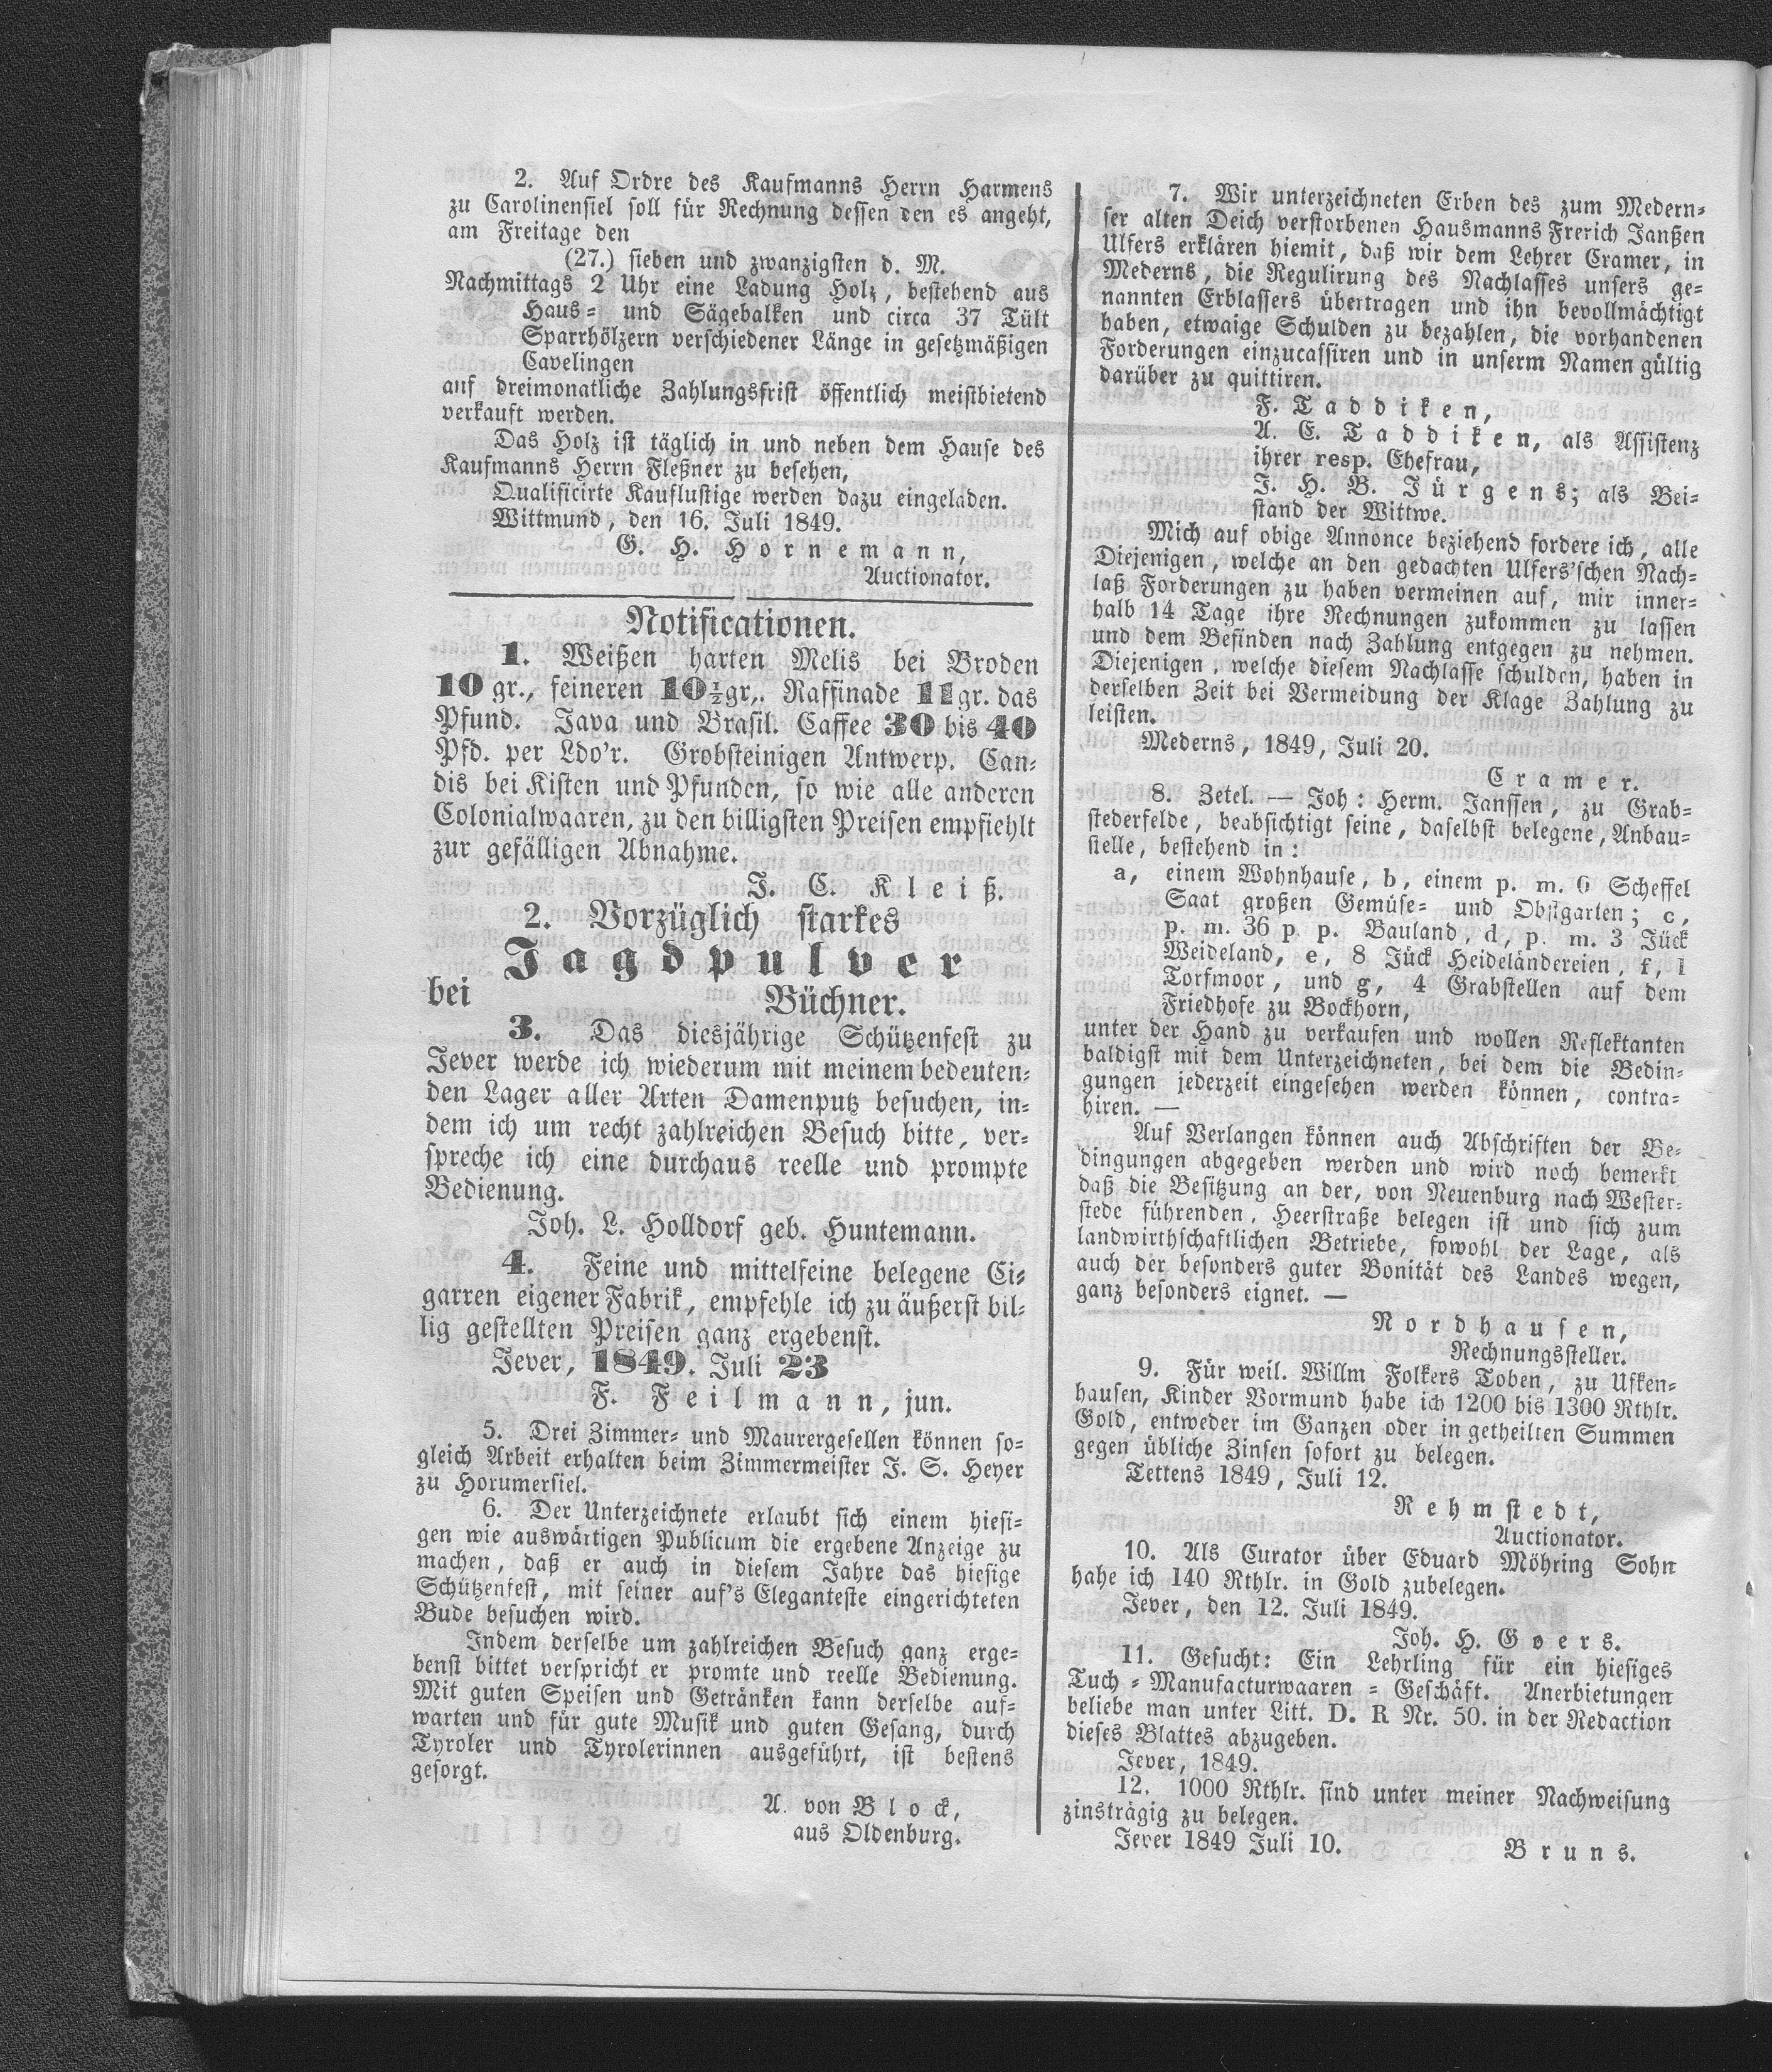 2. Auf Ordre des Kaufmanns Herrn Harmens
zu Carolinensiel soll für Rechnung dessen den es angeht,
am Freitage den
(27.) sieben und zwanzigsten d. M.
Nachmittags 2 Uhr eine Ladung Holz, bestehend aus
Haus= und Sägebalken und circa 37 Tült
Sparrhölzern verschiedener Länge in gesetzmäßigen
Cavelingen
auf dreimonatliche Zahlungsfrist öffentlich meistbietend
verkauft werden.
Das Holz ist täglich in und neben dem Hause des
Kaufmanns Herrn Fleßner zu besehen,
Qualificirte Kauflustige werden dazu eingeladen.
Wittmund, den 16. Juli 1849.
G. H. Hornemann,
Auctionator.
Notificationen.
1. Weißen harten Melis bei Broden
10 gr., feineren 10½gr,. Raffinade 11gr. das
Pfund. Java und Brasil. Caffee 30 bis 40
Pfd. per Ldo'r. Grobsteinigen Antwerp. Can=
dis bei Kisten und Pfunden, so wie alle anderen
Colonialwaaren, zu den billigsten Preisen empfiehlt
zur gefälligen Abnahme.
J. C. Kleiß.
2. Vorzüglich starkes
Jagdpulver
bei Büchner.
3. Das diesjährige Schützenfest zu
Jever werde ich wiederum mit meinem bedeuten=
den Lager aller Arten Damenputz besuchen, in=
dem ich um recht zahlreichen Besuch bitte, ver=
spreche ich eine durchaus reelle und prompte
Bedienung.
Joh. L. Holldorf geb. Huntemann.
4. Feine und mittelfeine belegene Ci=
garren eigener Fabrik, empfehle ich zu äußerst bil=
lig gestellten Preisen ganz ergebenst.
Jever, 1849. Juli 23
F. Feilmann, jun.
5. Drei Zimmer= und Maurergesellen können so=
gleich Arbeit erhalten beim Zimmermeister J. S. Heyer
zu Horumersiel.
6. Der Unterzeichnete erlaubt sich einem hiesi=
gen wie auswärtigen Publicum die ergebene Anzeige zu
machen, daß er auch in diesem Jahre das hiesige
Schützenfest, mit seiner auf's Eleganteste eingerichteten
Bude besuchen wird.
Indem derselbe um zahlreichen Besuch ganz erge=
benst bittet verspricht er promte und reelle Bedienung.
Mit guten Speisen und Getränken kann derselbe auf=
warten und für gute Musik und guten Gesang, durch
Tyroler und Tyrolerinnen ausgeführt, ist bestens
gesorgt.
A. von Block,
aus Oldenburg.
7. Wir unterzeichneten Erben des zum Medern=
ser alten Deich verstorbenen Hausmanns Frerich Janßen
Ulfers erklären hiemit, daß wir dem Lehrer Cramer, in
Mederns, die Regulirung des Nachlasses unsers ge=
nannten Erblassers übertragen und ihn bevollmächtigt
haben, etwaige Schulden zu bezahlen, die vorhandenen
Forderungen einzucassiren und in unserm Namen gültig
darüber zu quittiren.
F. Taddiken,
A. E. Taddiken, als Assistenz
ihrer resp. Ehefrau,
J. H. B. Jürgens; als Bei=
stand der Wittwe.
Mich auf obige Annonce beziehend fordere ich, alle
Diejenigen, welche an den gedachten Ulfers'schen Nach=
laß Forderungen zu haben vermeinen auf, mir inner=
halb 14 Tage ihre Rechnungen zukommen zu lassen
und dem Befinden nach Zahlung entgegen zu nehmen.
Diejenigen, welche diesem Nachlasse schulden, haben in
derselben Zeit bei Vermeidung der Klage Zahlung zu
leisten.
Mederns, 1849, Juli 20.
Cramer.
8. Zetel. — Joh: Herm. Janssen, zu Grab=
stederfelde, beabsichtigt seine, daselbst belegene, Anbau=
stelle, bestehend in:
a, einem Wohnhause, b, einem p. m. 6 Scheffel
Saat großen Gemüse= und Obstgarten; c,
p. m. 36 p. p. Bauland, d, p. m. 3 Jück
Weideland, e, 8 Jück Heideländereien, f, 1
Torfmoor, und g, 4 Grabstellen auf dem
Friedhofe zu Bockhorn,
unter der Hand zu verkaufen und wollen Reflektanten
baldigst mit dem Unterzeichneten, bei dem die Bedin=
gungen jederzeit eingesehen werden können, contra=
hiren. —
Auf Verlangen können auch Abschriften der Be=
dingungen abgegeben werden und wird noch bemerkt
daß die Besitzung an der, von Neuenburg nach Wester=
stede führenden, Heerstraße belegen ist und sich zum
landwirthschaftlichen Betriebe, sowohl der Lage, als
auch der besonders guter Bonität des Landes wegen,
ganz besonders eignet. —
Nordhausen,
Rechnungssteller.
9. Für weil. Willm Folkers Toben, zu Ufken=
hausen, Kinder Vormund habe ich 1200 bis 1300 Rthlr.
Gold, entweder im Ganzen oder in getheilten Summen
gegen übliche Zinsen sofort zu belegen.
Tettens 1849, Juli 12.
Rehmstedt,
Auctionator.
10. Als Curator über Eduard Möhring Sohn
hahe ich 140 Rthlr. in Gold zubelegen.
Jever, den 12. Juli 1849.
Joh. H. Goers.
11. Gesucht: Ein Lehrling für ein hiesiges
Tuch = Manufacturwaaren = Geschäft. Anerbietungen
beliebe man unter Litt. D. R Nr. 50. in der Redaction
dieses Blattes abzugeben.
Jever, 1849.
12. 1000 Rthlr. sind unter meiner Nachweisung
zinsträgig zu belegen.
Jever 1849 Juli 10. Bruns.